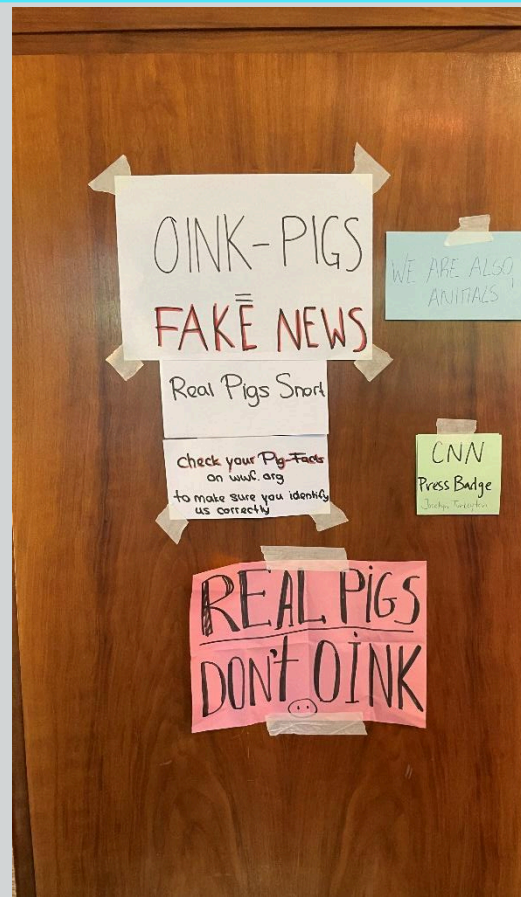 OINK-PIGS
=
FAKE NEWS
Real Pigs Snort
Check your Pig-Facts
on wwf.org
to make sure you identify
us correctly
WE ARE ALSO
ANIMALS
CNN
Press Badge
REAL PiGS
DON't OiNK